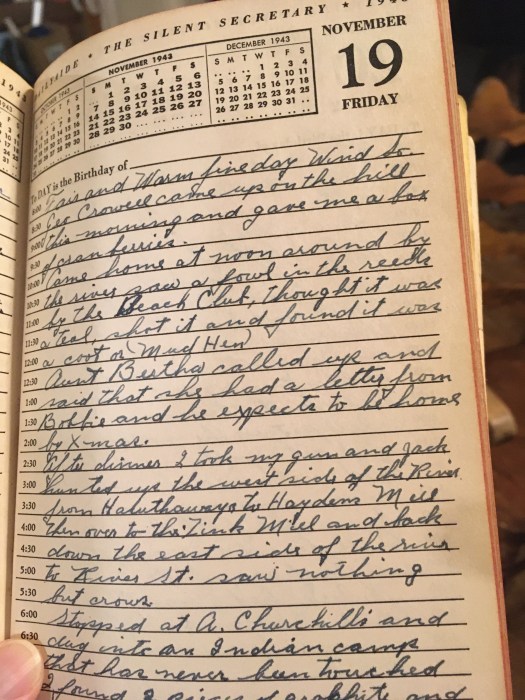 THE SILENT SECRETARY ★ 194
NOVEMBER
19
FRIDAY
NOVEMBER 1943
S M T W T F S
.. 1 2 3 4 5 6
7 8 9 10 11 12 13
14 15 16 17 18 19 20
21 22 23 24 25 26 27
28 29 30 .. .. .. ..
DECEMBER 1943
S M T W T F S
.. .. .. 1 2 3 4
5 6 7 8 9 10 11
12 13 14 15 16 17 18
19 20 21 22 23 24 25
26 27 28 29 30 31 ..
To DAY is the Birthday of
8:00 Fair and Warm fine day Wind So.
8:30 Geo Crowell came up on the hill
9:00 this morning and gave me a box
9:30 of cranberries.
10:00 Came home at noon around by
10:30 the river saw a fowl in the reeds
11:00 by the Beach Club, thought it was
11:30 a teal, shot it and found it was
12:00 a coot or (Mud Hen)
12:30 Aunt Bertha called up and
1:00 said that she had a letter from
1:30 Bobbie and he expects to be home
2:00 by X-mas.
2:30 After dinner I took my gun and Jack
3:00 hunted up the west side of the River
3:30 from Hathaways to Haydens Mill
4:00 then over to the Zink Mill and back
4:30 down the east side of the river
5:00 to River St. saw nothing
5:30 but crows.
6:00 Stopped at A. Churchills and
6:30 dug into an Indian camp
that has never been touched
I found 2 pieces of graphite and